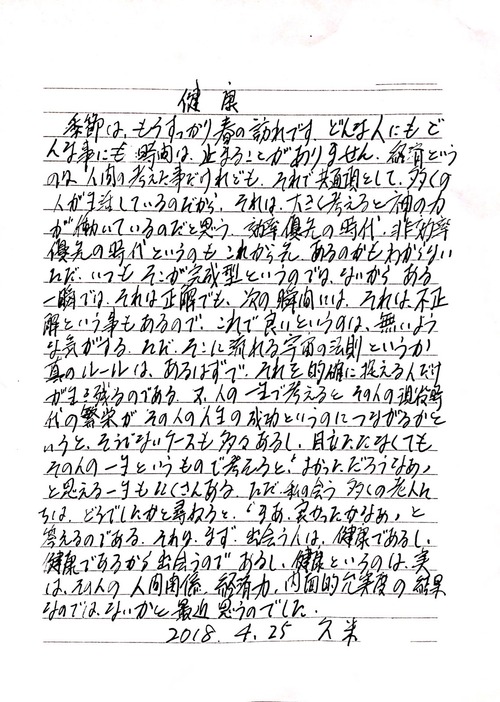 健康
季節は、もうすっかり春の訪れです。どんな人にもど
んな事にも時間は、止まることがありません。経済という
のは、人間の考えた事だけれども、それで共通項として、多くの
人が生活しているのだから、それは、大きく考えると神の力
が働いているのだと思う。効率優先の時代、非効率
優先の時代というのも、これから先、あるのかもわからない
ただ、いつも、そこが完成型というのでは、ないから、ある
一瞬では、それは正解でも、次の瞬間には、それは、不正
解という事もあるので、これで良いというのは、無いよう
な気がする。ただ、そこに流れる宇宙の法則というか
真のルールは、あるはずで、それを的確に捉える人だけ
が生き残るのである。又、人の一生で考えると、その人の
時代の繁栄が、その人の人生の成功というのにつながるかと
いうと、そうでないケースも多々あるし、目立たなくても
その人の一生というもので考えると、「よかっただろうなあ」
と思える一生もたくさんある。ただ、私の会う多くの老人た
ちは、どうでしたかと尋ねると、「まあ、良かったかなぁ」と
答えるのである。それは、まず、出会う人は、健康であるし、
健康であるから出会うのであるし、健康というのは、実
は、その人の人間関係、経済力、内面的充実度の結果
なのでは、ないかと最近思うのでした。
2018.4.25 久米